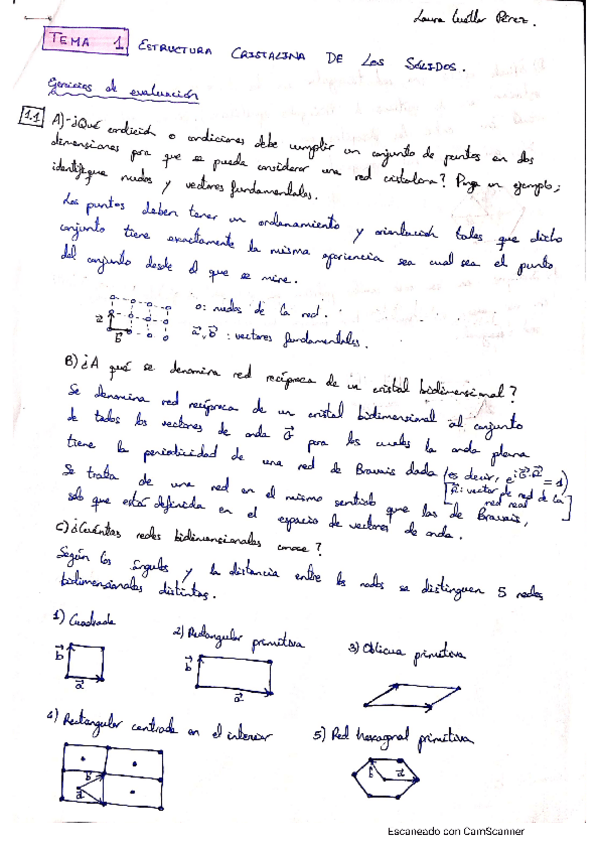 Laura Cuéllar Pérez.
TEMA 1 ESTRUCTURA CRISTALINA DE LOS SÓLIDOS.
Ejercicios de evaluación
1.1 A)-¿Qué condición o condiciones debe cumplir un conjunto de puntos en dos
dimensiones para que se pueda considerar una red cristalina? Ponga un ejemplo;
identifique nudos y vectores fundamentales.
Los puntos deben tener un ordenamiento y orientación tales que dicho
conjunto tiene exactamente la misma apariencia sea cual sea el punto
del conjunto desde el que se mire.
o: nudos de la red.
a b
a, b : vectores fundamentales.
B) ¿A qué se denomina red recíproca de un cristal bidimensional?
Se denomina red recíproca de un cristal bidimensional al conjunto
de todos los vectores de onda G para los cuales la onda plana
tiene la periodicidad de una red de Bravais dada (es decir, e^iG·R = 1)
[R: vector de red de la
red real]
Se trata de una red en el mismo sentido que las de Bravais,
solo que está definida en el espacio de vectores de onda.
C) ¿Cuántas redes bidimensionales conoce?
Según los ángulos y la distancia entre los nodos se distinguen 5 redes
bidimensionales distintas.
1) Cuadrada
2) Rectangular primitiva
3) Oblicua primitiva
b a
b a
4) Rectangular centrada en el interior
5) Red hexagonal primitiva
b a
b a
Escaneado con CamScanner